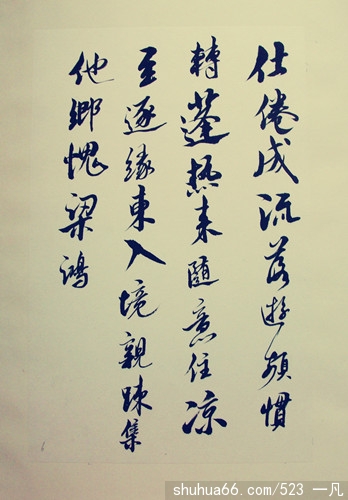 仕倦成流落遊頻慣
轉蓬热来隨意住凉
至逐緣東入境親踈集
他鄉愧梁鴻
shuhua66.com/523 一凡